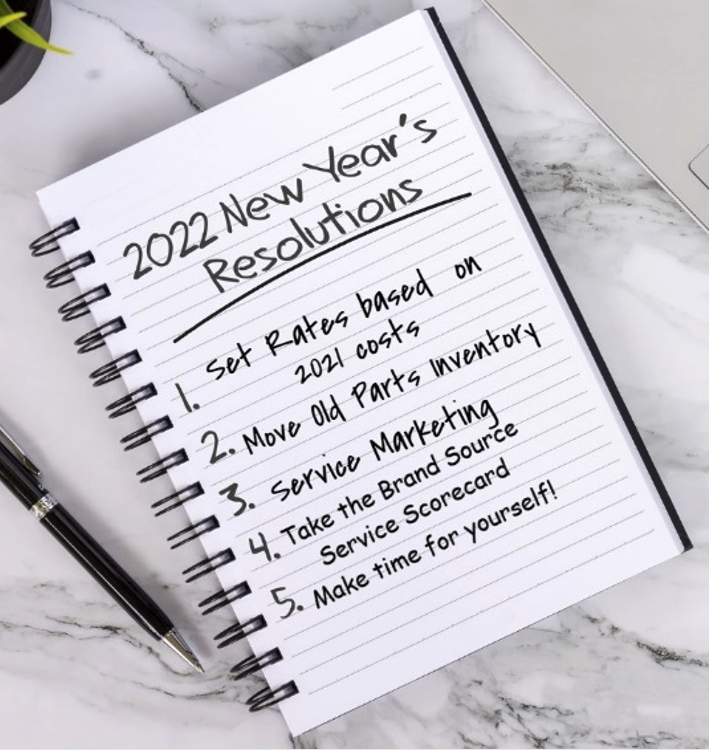 2022 New Year's
Resolutions
1. Set Rates based on
2021 costs
2. Move Old Parts Inventory
3. Service Marketing
4. Take the Brand Source
Service Scorecard
5. Make time for yourself!